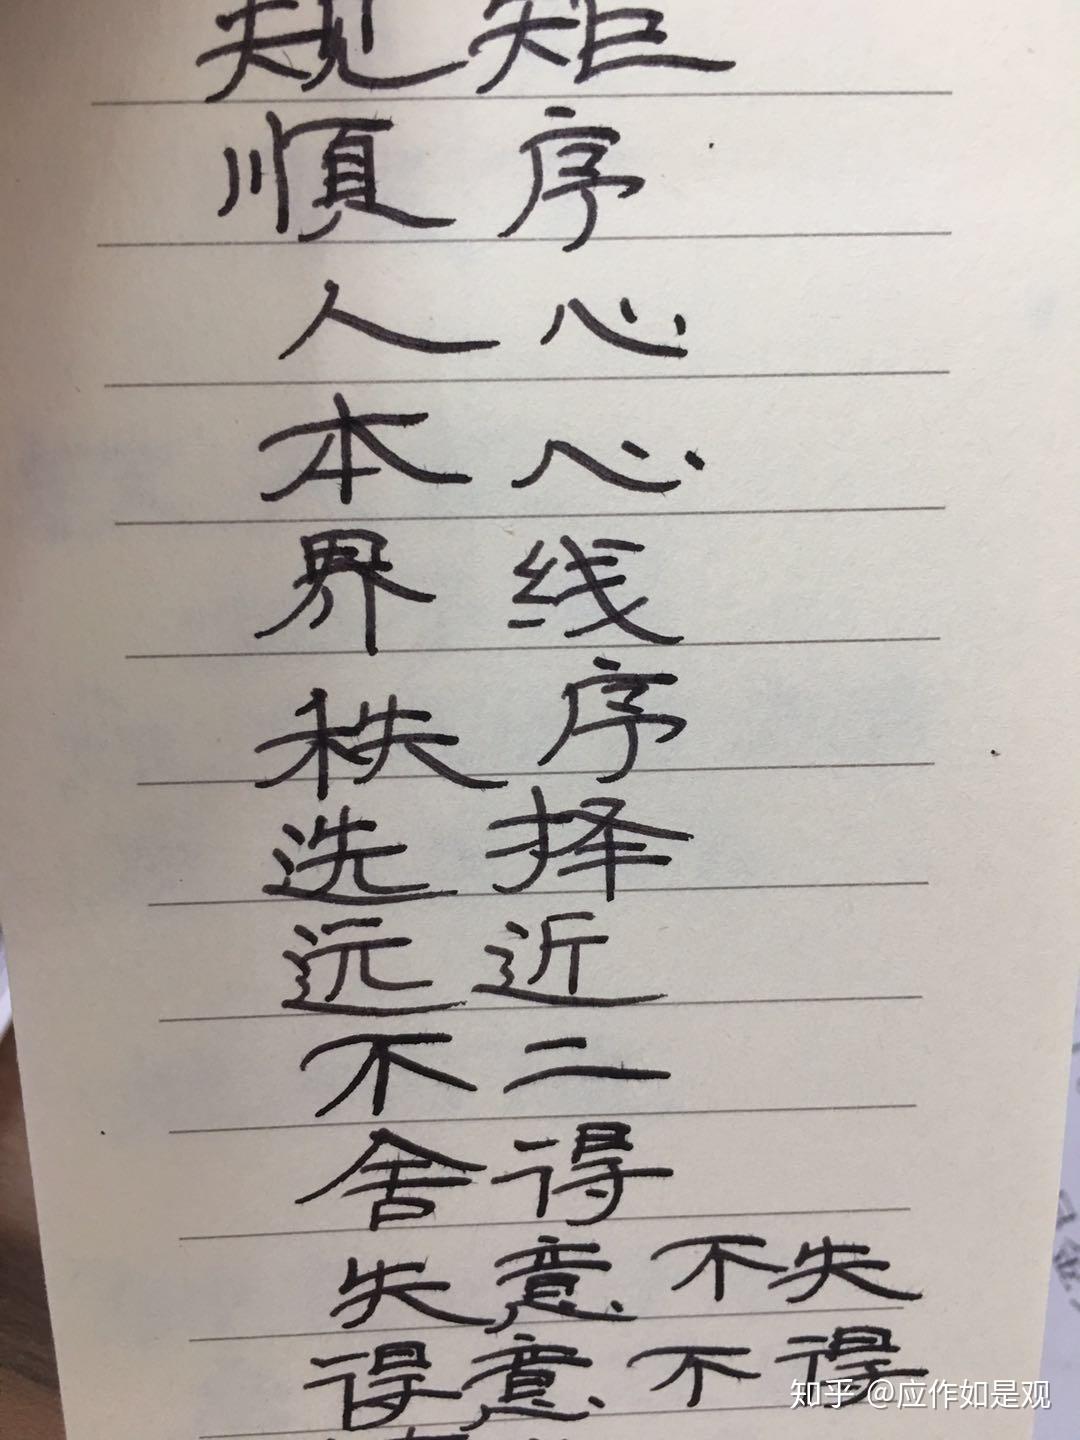 规矩
順序
人心
本心
界线
秩序
选择
远近
不二
舍得
失意不失
得意不得
知乎 @应作如是观